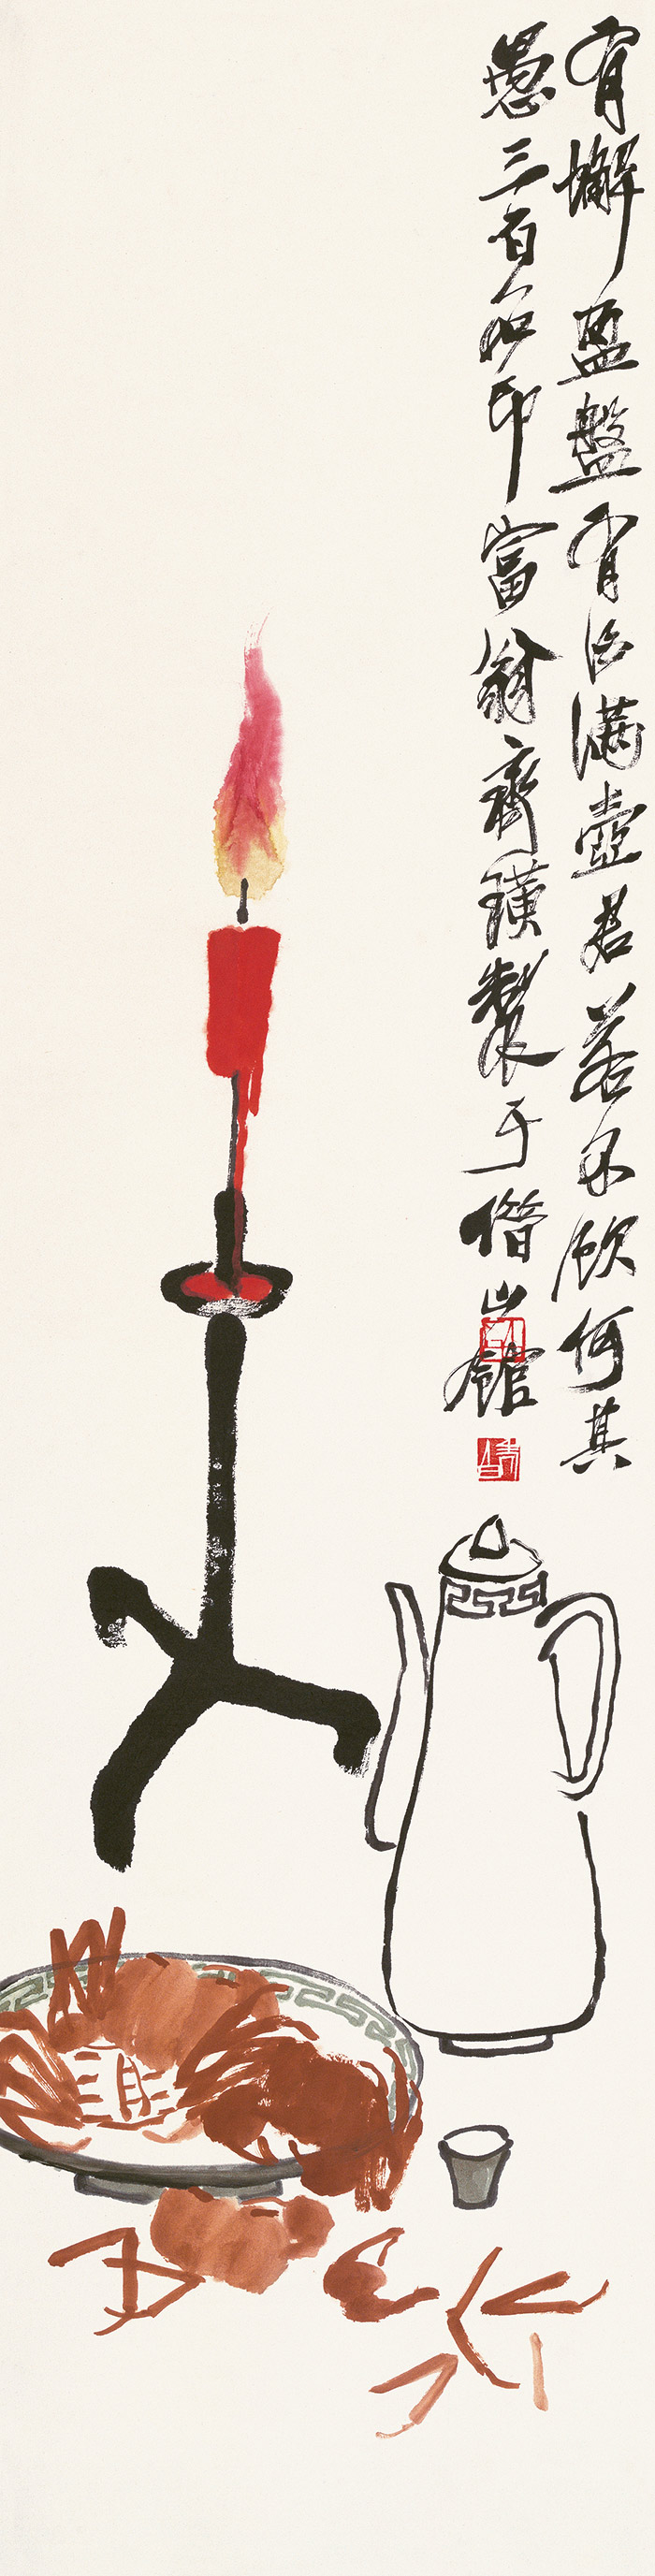 有蠏盈盤有酒滿壺君若不飲何其
愚三百石印富翁齊璜製于借山館